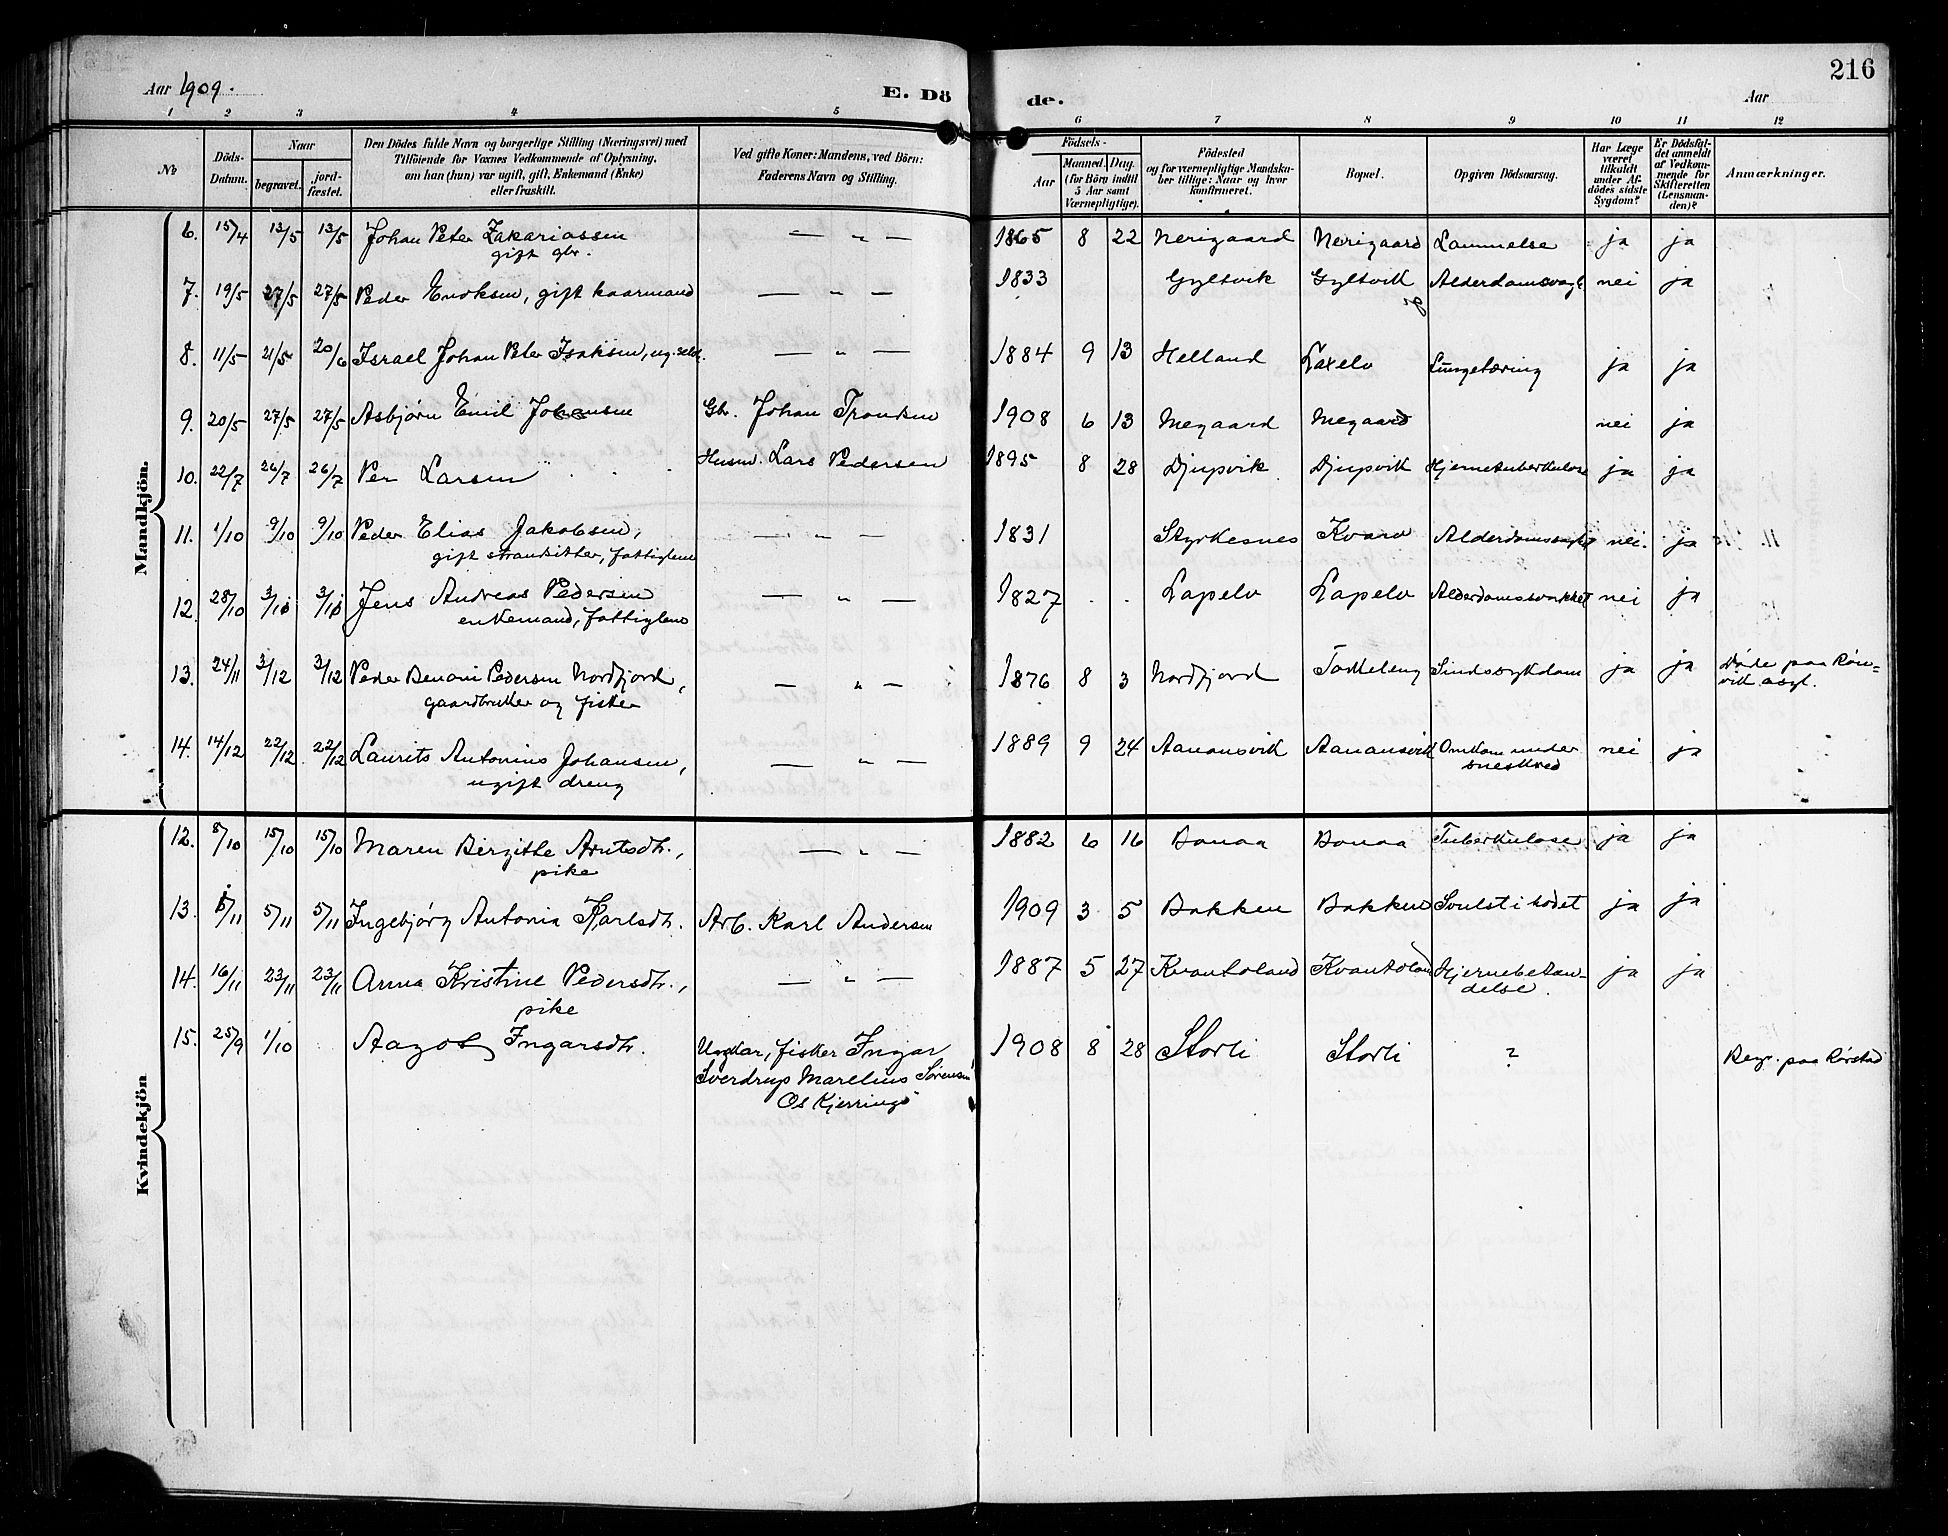 216
Aar 1909.
E. Dö
de.
Aar
1 2 3 4 5 6 7 8 9 10 11 12
No
Döds-Datum.
Naar
begravet.
jord-fæstet.
Den Dödes fulde Navn og borgerlige Stilling (Næringsvei) med
Tilföiende for Voxnes Vedkommende af Oplysning,
om han (hun) var ugift, gift, Enkemand (Enke)
eller fraskilt.
Ved gifte Koner: Mandens, ved Börn:
Faderens Navn og Stilling.
Födsels-
Aar
Maaned. Dag.
(for Börn indtil
5 Aar samt
Værnepligtige).
Födested
og for værnepligtige Mandska-
ber tillige: Naar og hvor
Konfirmeret.
Bopæl.
Opgiven Dödsaarsag.
Har Læge
været
tilkaldt
under Af-
dödes sidste
Sygdom?
Er Dödsfal-
det anmeldt
af Vedkom-
mende for
Skifteretten
(Lensman-
den)?
Anmærkninger.
Mandkjön.
6. 15/4 13/5 13/5 Johan Peter Zakariassen — „ — 1865 8 22 Nerigaard Nerigaard Lammelse ja ja
gift gbr.
7. 19/5 27/5 27/5 Peder Enoksen, gift kaarmand — „ — 1833 Gyltvik Gyltvik nei ja
8. 11/5 21/5 20/6 Israel Johan Peter Isaksen, ug. — „ — 1884 9 13 Helland Laxelv Lungetæring ja ja
9. 20/5 27/5 27/5 Asbjørn Emil Johansen Gbr. Johan Trondsen 1908 6 13 Megaard Megaard nei ja
10. 22/7 26/7 26/7 Per Larsen Husm. Lars Pedersen 1895 8 28 Djupvik Djupvik Hjernetuberkulose ja ja
11. 1/10 9/10 9/10 Peder Elias Jakobsen, — „ — 1831 Styrkesnes Kvarv nei. ja
gift strandsitter, fattiglem
12. 28/10 Jens Andreas Pedersen — „ — 1827 . . Lapelv Lapelv Alderdomssvakket nei ja
enkemand, fattiglem
13. 24/11 3/12 3/12 Peder Benoni Pedersen Nordfjord, — „ — 1876 8 3 Nordfjord Tortteleng Sindssygdom ja ja Døde paa Røn-
gaardbruker og fisker vik asyl.
14. 14/12 22/12 22/12 Laurits Antonius Johansen, — „ — 1889 9 24 Aanansvik Aanansvik Omkom under nei ja
ugift dreng sneskred
Kvindekjön
12. 8/10 15/10 15/10 Maren Birgitte Arntsdtr., — „ — 1882 6 16 Bonaa Bonaa Tuberkulose ja ja
pike
13. 5/11 5/11 Ingebjørg Antonia Karlsdtr. Arb. Karl Andersen 1909 3 5 Bakken Bakken Svulst i hodet ja ja
14. 16/11 23/11 23/11 Anna Kristine Pedersdtr., — „ — 1887 5 27 Kvantoland Kvantoland Hjernebetæn- ja ja
pike delse.
15. 25/9 1/10 Aagot Ingarsdtr. Ungkar, fisker Ingar 1908 8 28 Storli Storli ? Begr. paa Rørstad
Sverdrup Marelius Sørensen
Os Kjerringø